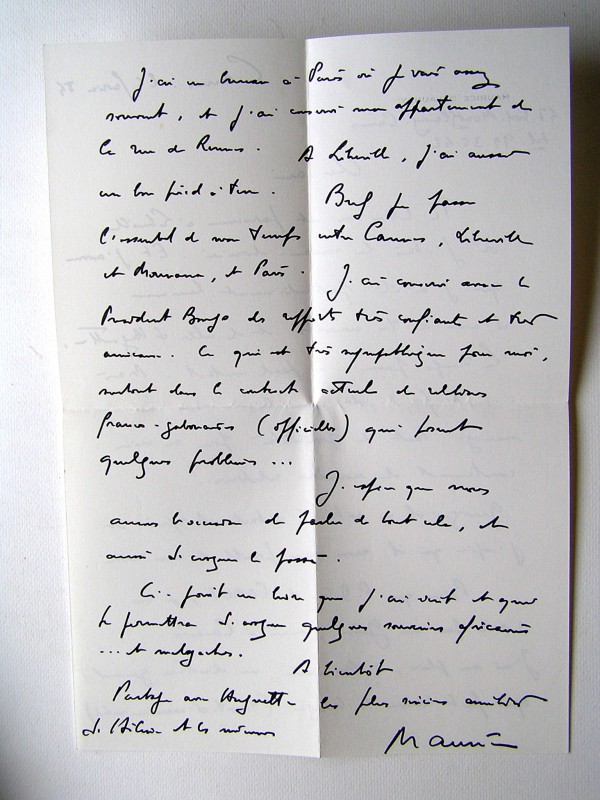 J'ai un bureau à Paris où je vais assez
souvent, et j'ai conservé mon appartement de
la rue de Rennes. A Libreville, j'ai aussi
un bon pied à terre. Bref je passe
l'essentiel de mon temps entre Cannes, Libreville
et Paris. J'ai conservé avec le
Président Bongo des rapports très confiants et très
amicaux. Ce qui est très sympathique pour moi,
surtout dans le contexte actuel de relations
franco-gabonaises (officielles) qui posent
quelques problèmes ...
J'espère que nous
aurons l'occasion de parler de tout cela, et
aussi d'évoquer le passé.
Ci-joint un livre que j'ai écrit et qui
te permettra d'évoquer quelques souvenirs africains
... et malgaches.
A bientôt
Partage avec Huguette les plus vives amitiés
d'Hélène et les miennes
Maurice